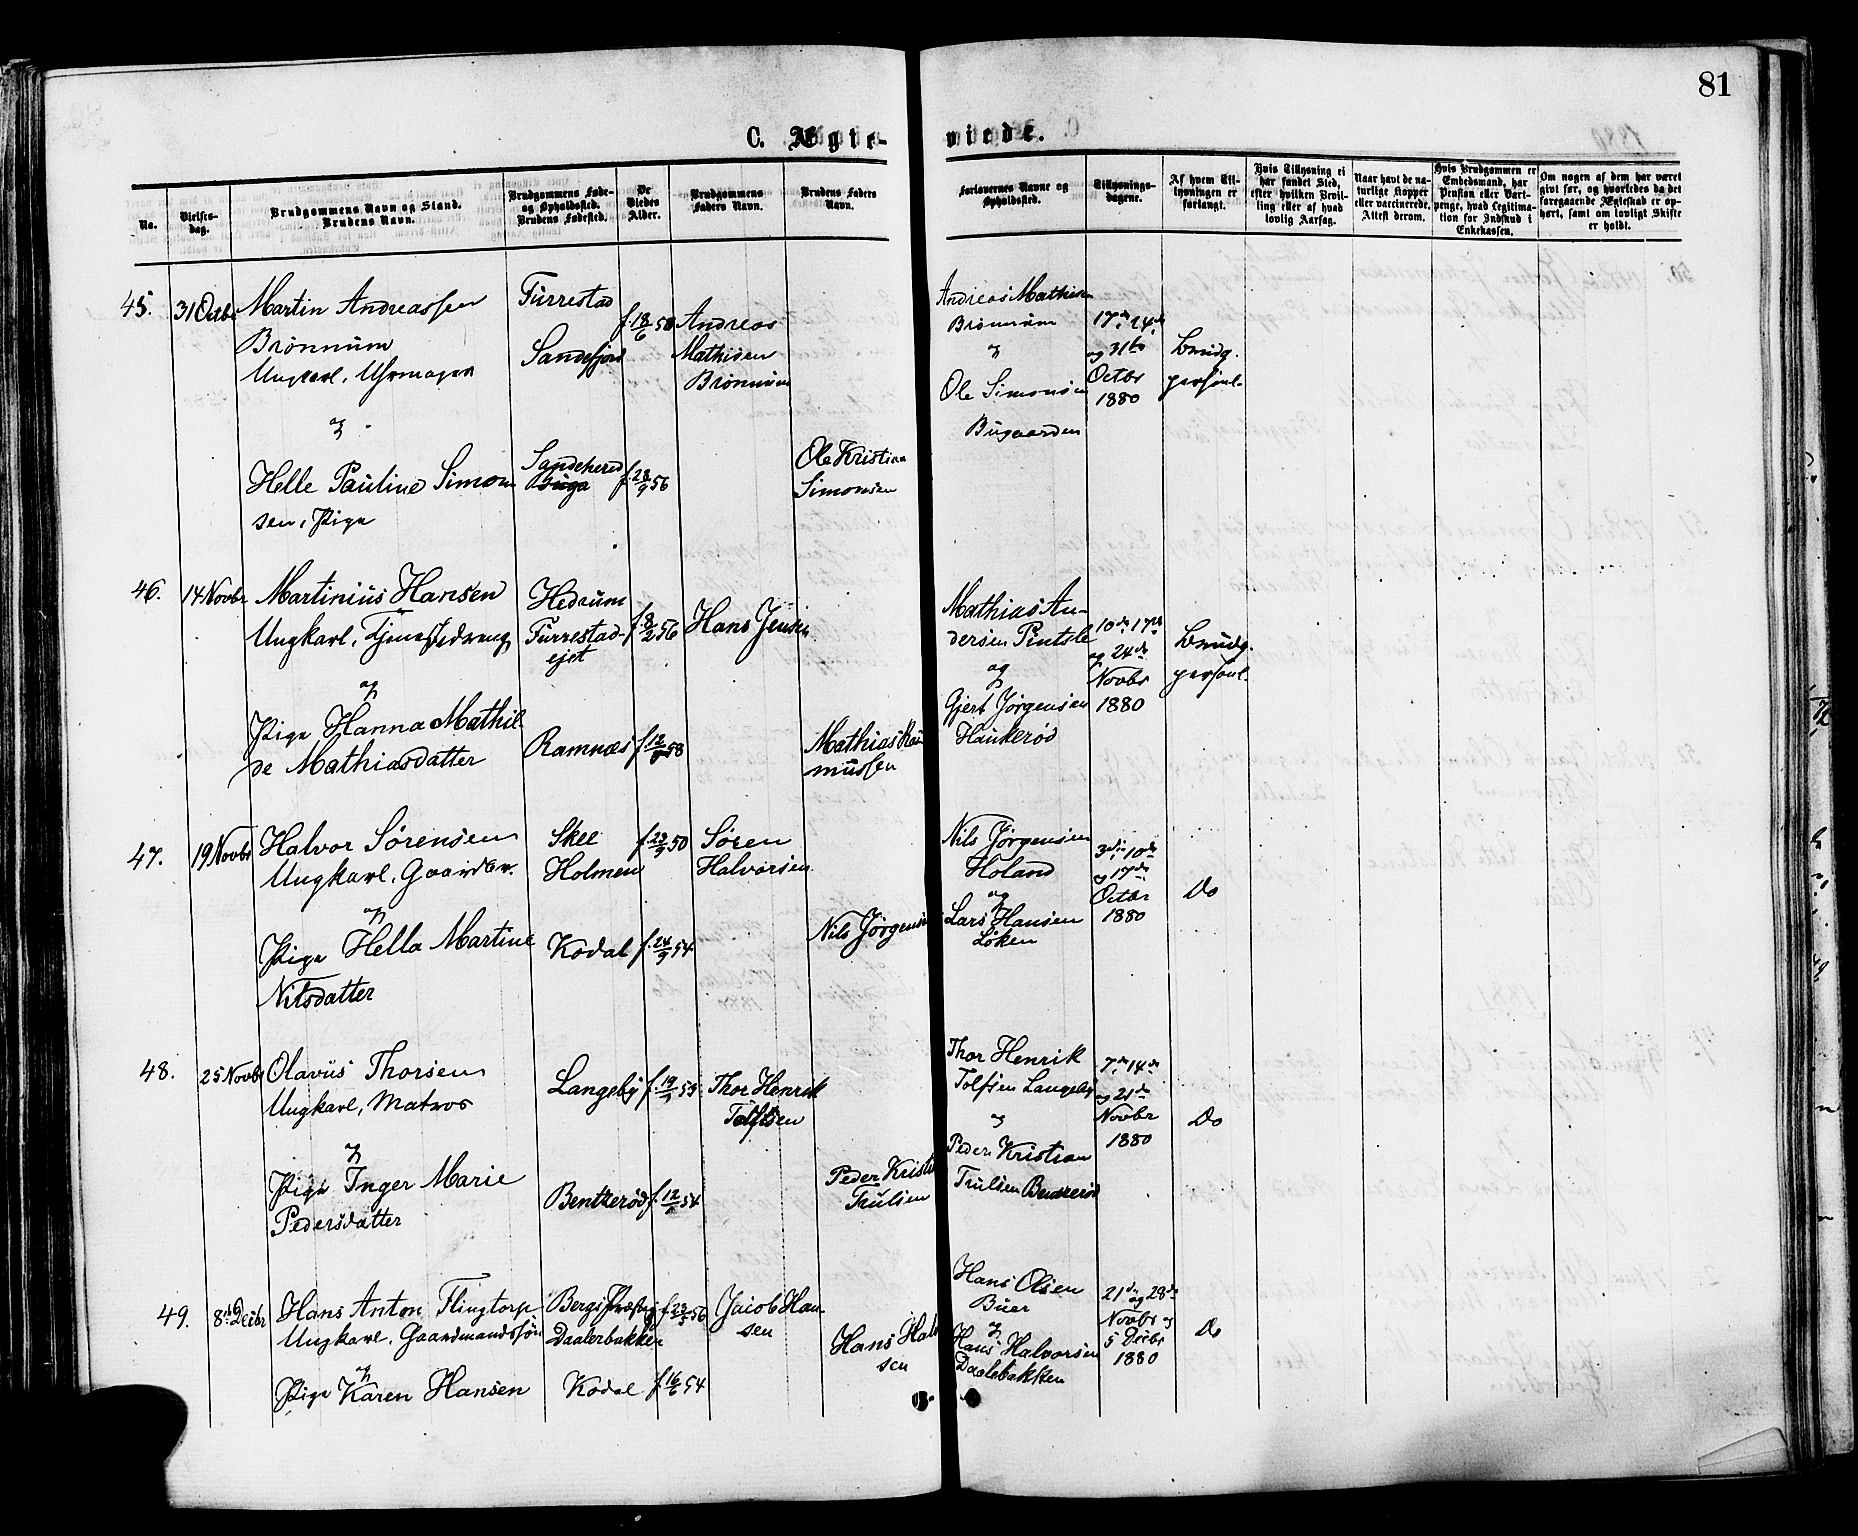 81
C. Ægte-
viede.
No.
Vielses-
dag.
Brudgommens Navn og Stand.
Brudens Navn.
Brudgommens Føde-
og Opholdssted.
Brudens Fødested.
De
Viedes
Alder.
Brudgommens
Faders Navn.
Brudens Faders
Navn.
Forlovernes Navne og
Opholdssted.
Tillysnings-
dagene.
Af hvem Til-
lysningen er
forlangt.
Hvis Tillysning ei
har fundet Sted,
efter hvilken Bevil-
ling eller af hvad
lovlig Aarsag.
Naar havt de na-
turlige Kopper
eller vaccinerede,
Attest derom.
Hvis Brudgommen er
Embedsmand, har
Pension eller Vart-
penge, hvad Legitima-
tion for Indskud i
Enkekassen.
Om nogen af dem har været
givt før, og hvorledes da det
foregaaende Ægteskab er op-
hørt, samt om lovligt Skifte
er holdt.
45.
31 Octbr
Martin Andreassen
Brønnum
Ungkarl, Uhrmager
og
Helle Pauline Simon
sen, Pige
Furrestad
Sandefjord
Sandeherred
Buga
f. 18/6 50
f. 28/9 56
Andreas
Mathisen
Brønnum
Ole Kristian
Simonsen
Andreas Mathisen
Brønnum
og
Ole Simonsen
Bugaarden
17de 24de
og 31te
Octbr
1880
Brudg.
personl.
46.
14 Novbr
Martinius Hansen
Ungkarl, Tjenestedreng
og
Pige Hanna Mathil
de Mathiasdatter
Hedrum
Furrestad-
ejet
Ramnæs
f. 8/2 56
f. 12/9 58
Hans Jensen
Mathias Ras
mussen
Mathias An-
dersen Pintsle
og
Gjert Jørgensen
Haukerød
10de 17de
og 24de
Novbr
1880
Brudg.
personl.
47.
19 Novbr
Halvor Sørensen
Ungkarl, Gaardbr.
og
Pige Hella Martine
Nilsdatter
Skee
Holmen
Kodal
f. 23/9 50
f. 24/9 54
Søren
Halvorsen
Nils Jørgensen
Nils Jørgensen
Holand
og
Lars Hansen
Løken
3die 10de
og 17de
Octbr
1880
Do
48.
25 Novbr
Olavus Thorsen
Ungkarl, Matros
og
Pige Inger Marie
Pedersdatter
Langeby
Bentserød
Thor Henrik
Tolfsen
Peder Kristi
Trulsen
Thor Henrik
Tolfsen Langeby
og
Peder Kristian
Trulsen Bentserød
7de 14de
og 21de
Novbr
1880
Do
49.
8de Decbr
Hans Anton Flingtorp
Ungkarl, Gaardmandssøn
og
Pige Karen Hansen
Bergs Præstegj
Daalerbakken
Kodal
f. 16/6 54
Jacob Han-
sen
Hans Halv
sen
Hans Olsen
Buer
og
Hans Halvorsen
Daalebakken
21de og 28de
Novbr og
5 Decbr
1880
Do